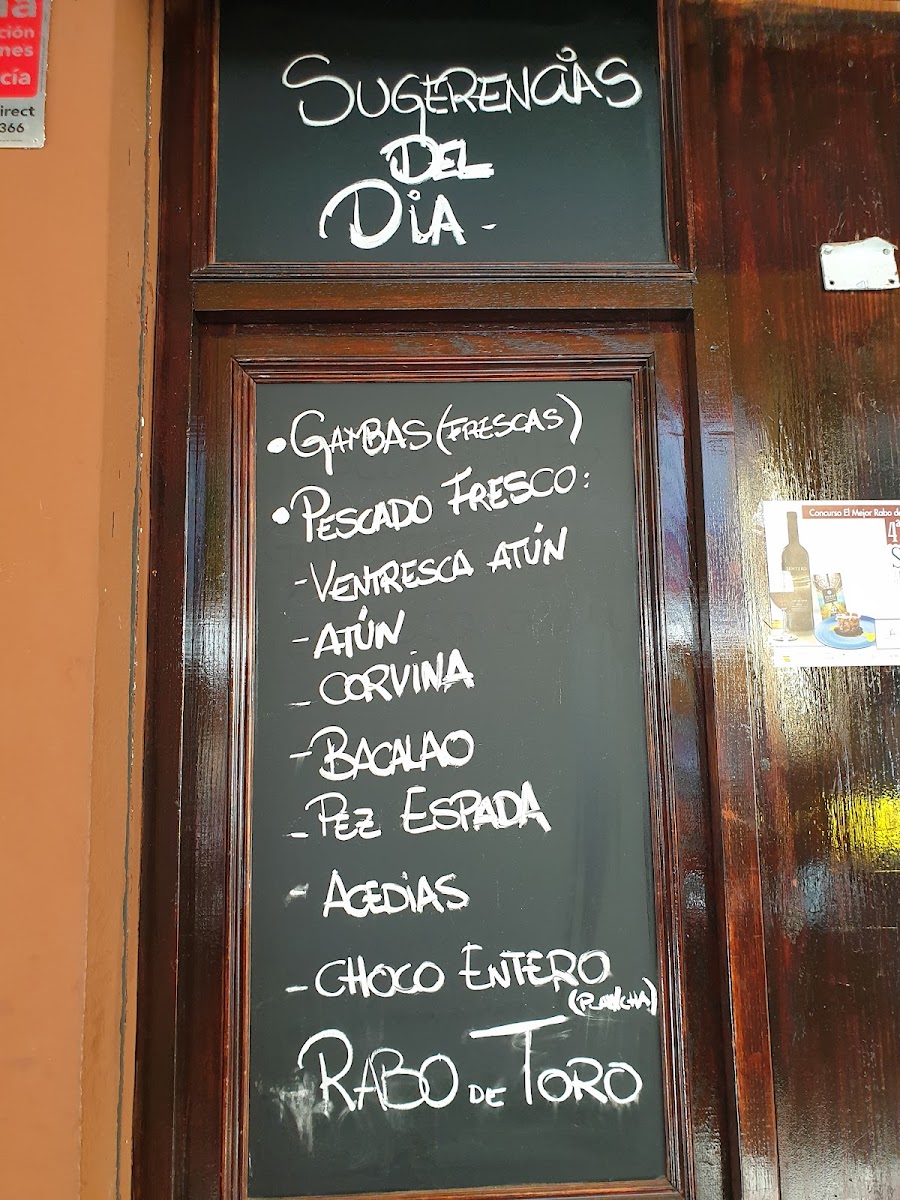 ción
nes
cía
irect
366
SUGERENCIAS
DEL
DIA.
• GAMBAS (FRESCAS)
• PESCADO FRESCO:
- VENTRESCA ATÚN
- ATÚN
- CORVINA
- BACALAO
- PEZ ESPADA
- ACEDIAS
- CHOCO ENTERO
(PLANCHA)
RABO DE TORO
Concurso El Mejor Rabo de
4ª